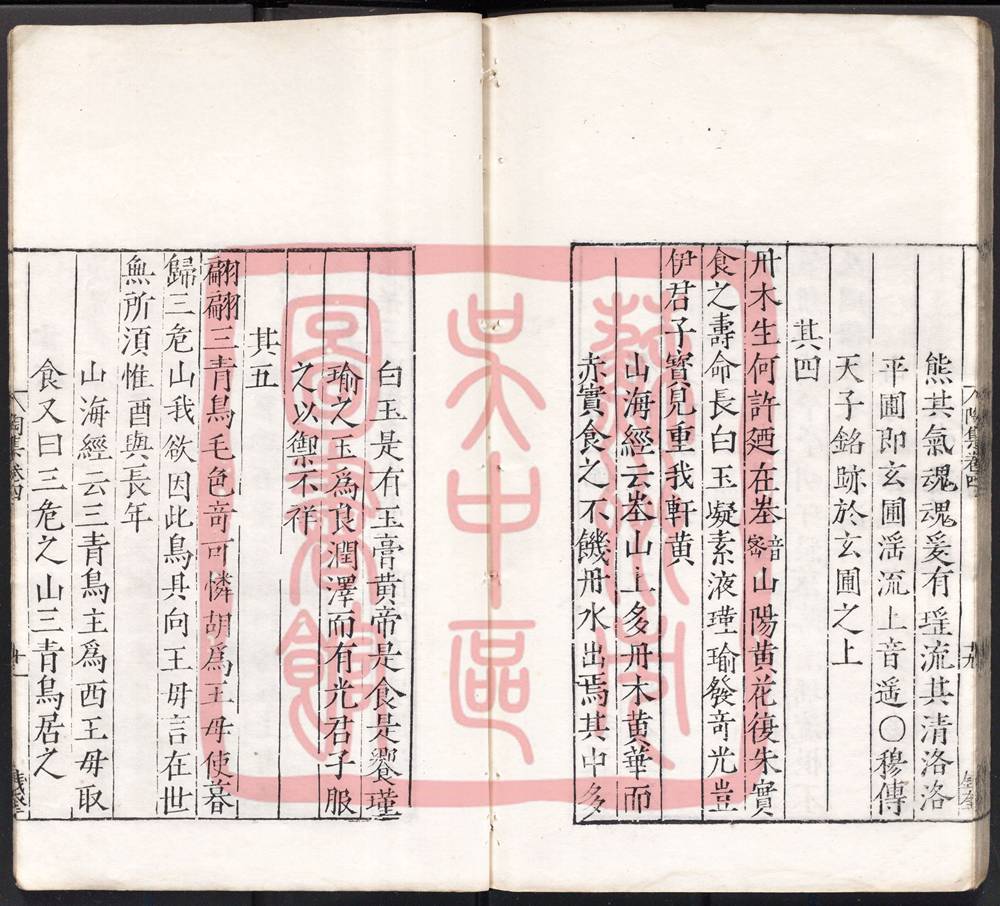 熊其氣魂魂爰有瑶流其清洛洛
平圃即玄圃滛流上音遥○穆傳
天子銘跡於玄圃之上
其四
丹木生何許廼在峚音密山陽黄花復朱實
食之壽命長白玉凝素液瑾瑜發竒光豈
伊君子寳見重我軒黄
山海經云峚山上多丹木黄華而
赤實食之不饑丹水出焉其中多
白玉是有玉膏黄帝是食是饗瑾
瑜之玉爲良潤澤而有光君子服
之以禦不祥
其五
翩翩三青鳥毛色竒可憐胡爲王母使暮
歸三危山我欲因此鳥具向王母言在世
無所湏惟酒與長年
山海經云三青鳥主爲西王母取
食又曰三危之山三青鳥居之
陶集卷四
十九
陶集卷四
二十
蘇州市
吴中區
圖書館